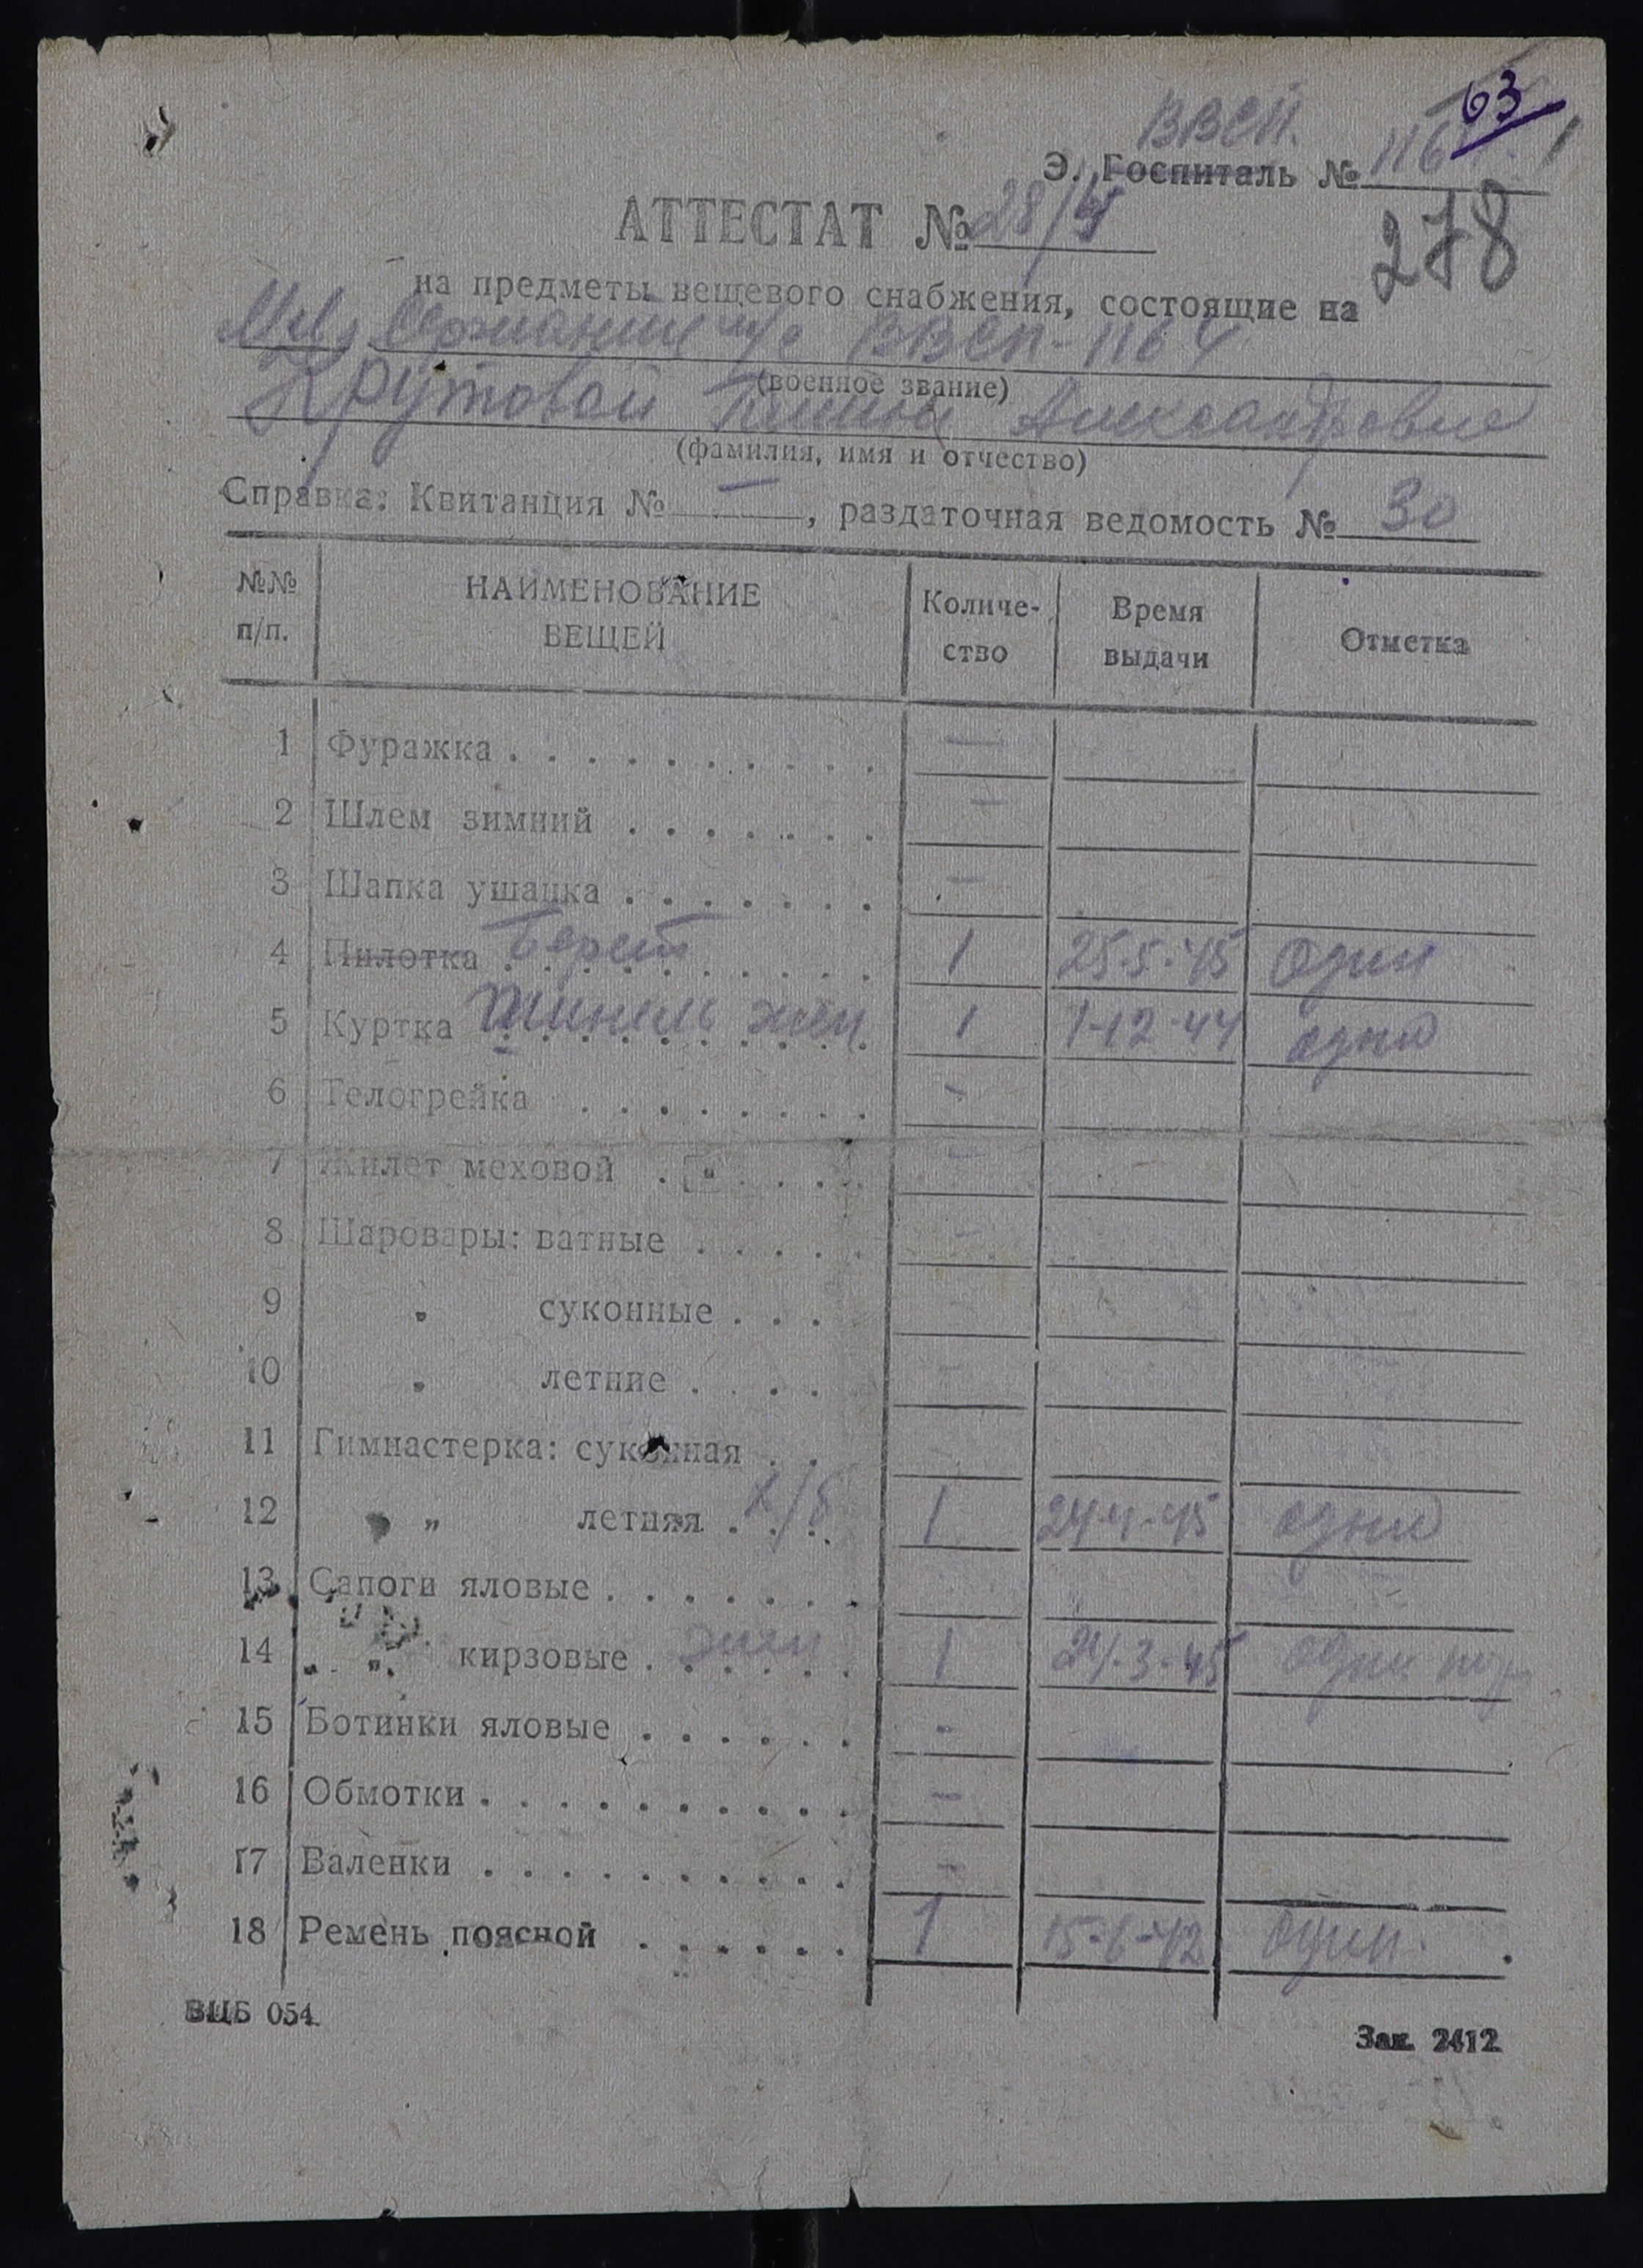 63
ВВСП.
Э. Госпиталь № 1164
АТТЕСТАТ № 28/
278
на предметы вещевого снабжения, состоящие на
Мл. Сержант м/с ВВСП-1164
(военное звание)
Крутовой Александровне
(фамилия, имя и отчество)
Справка: Квитанция № —, раздаточная ведомость № 30
№№ п/п. НАИМЕНОВАНИЕ ВЕЩЕЙ Количе-ство Время выдачи Отметка
1 Фуражка . . . . . . . . . . —
2 Шлем зимний . . . . . . . —
3 Шапка ушанка . . . . . . . —
4 Пилотка Берет . . . . . . . . . . 1 25·5·45 один
5 Куртка Шинель жен . . . . . . . . . . 1 1-12-44 одна
6 Телогрейка . . . . . . . . —
7 Жилет меховой . . . . . —
8 Шаровары: ватные . . . . . -
9 „ суконные . . . -
10 „ летние . . . . -
11 Гимнастерка: суконная . .
12 „ летняя х/б . . . 1 24·4·45 одна
13 Сапоги яловые . . . . . . .
14 „ „ кирзовые жен . . . . . . 1 24·3·45 один
15 Ботинки яловые . . . . . . -
16 Обмотки . . . . . . . . . . -
17 Валенки . . . . . . . . . . -
18 Ремень поясной . . . . . . 1 15-6-42 один.
ВЦБ 054
Зак. 2412